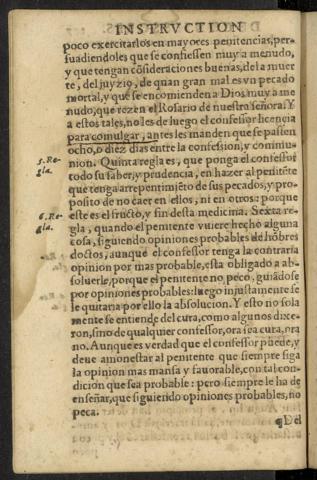 INSTRVCTION
poco exercitarlos en mayores penitencias, per-
suadiendoles que se confiessen muy a menudo,
y que tengan cõsideraciones buenas, de la muer
te, del juyzio, de quan gran mal es vn pecado
mortal, y que se encomienden a Dios, muy a me
nudo, que rezen el Rosario de nuestra señora. Y
a estos tales, no les de luego el confessor licencia
para comulgar, antes les manden que se passen
ocho, o diez dias entre la confession, y commu-
5. Re-
gla.
nion. Quinta regla es, que ponga el confessor
todo su saber, y prudencia, en hazer al penitẽte
que tenga arrepentimiẽto de sus pecados, y pro-
posito de no caer en ellos, ni en otros: porque
6. Re-
gla.
este es el fructo, y fin desta medicina. Sexta re-
gla, quando el penitente vuiere hecho alguna
cosa, siguiendo opiniones probables de hõbres
doctos, aunque el confessor tenga la contraria
opinion por mas probable, esta obligado a ab-
soluerle, porque el penitente no peco, guiãdose
por opiniones probables: luego injustamente se
le quitaria por ello la absolucion. Y esto no sola
mente se entiende del cura, como algunos dixe-
ron, sino de qualquier confessor, ora sea cura, ora
no. Aunque es verdad que el confessor puede, y
deue amonestar al penitente que siempre siga
la opinion mas mansa y fauorable, con tal con-
dicion que sea probable: pero siempre le ha de
enseñar, que siguiendo opiniones probables, no
peca.
¶Del